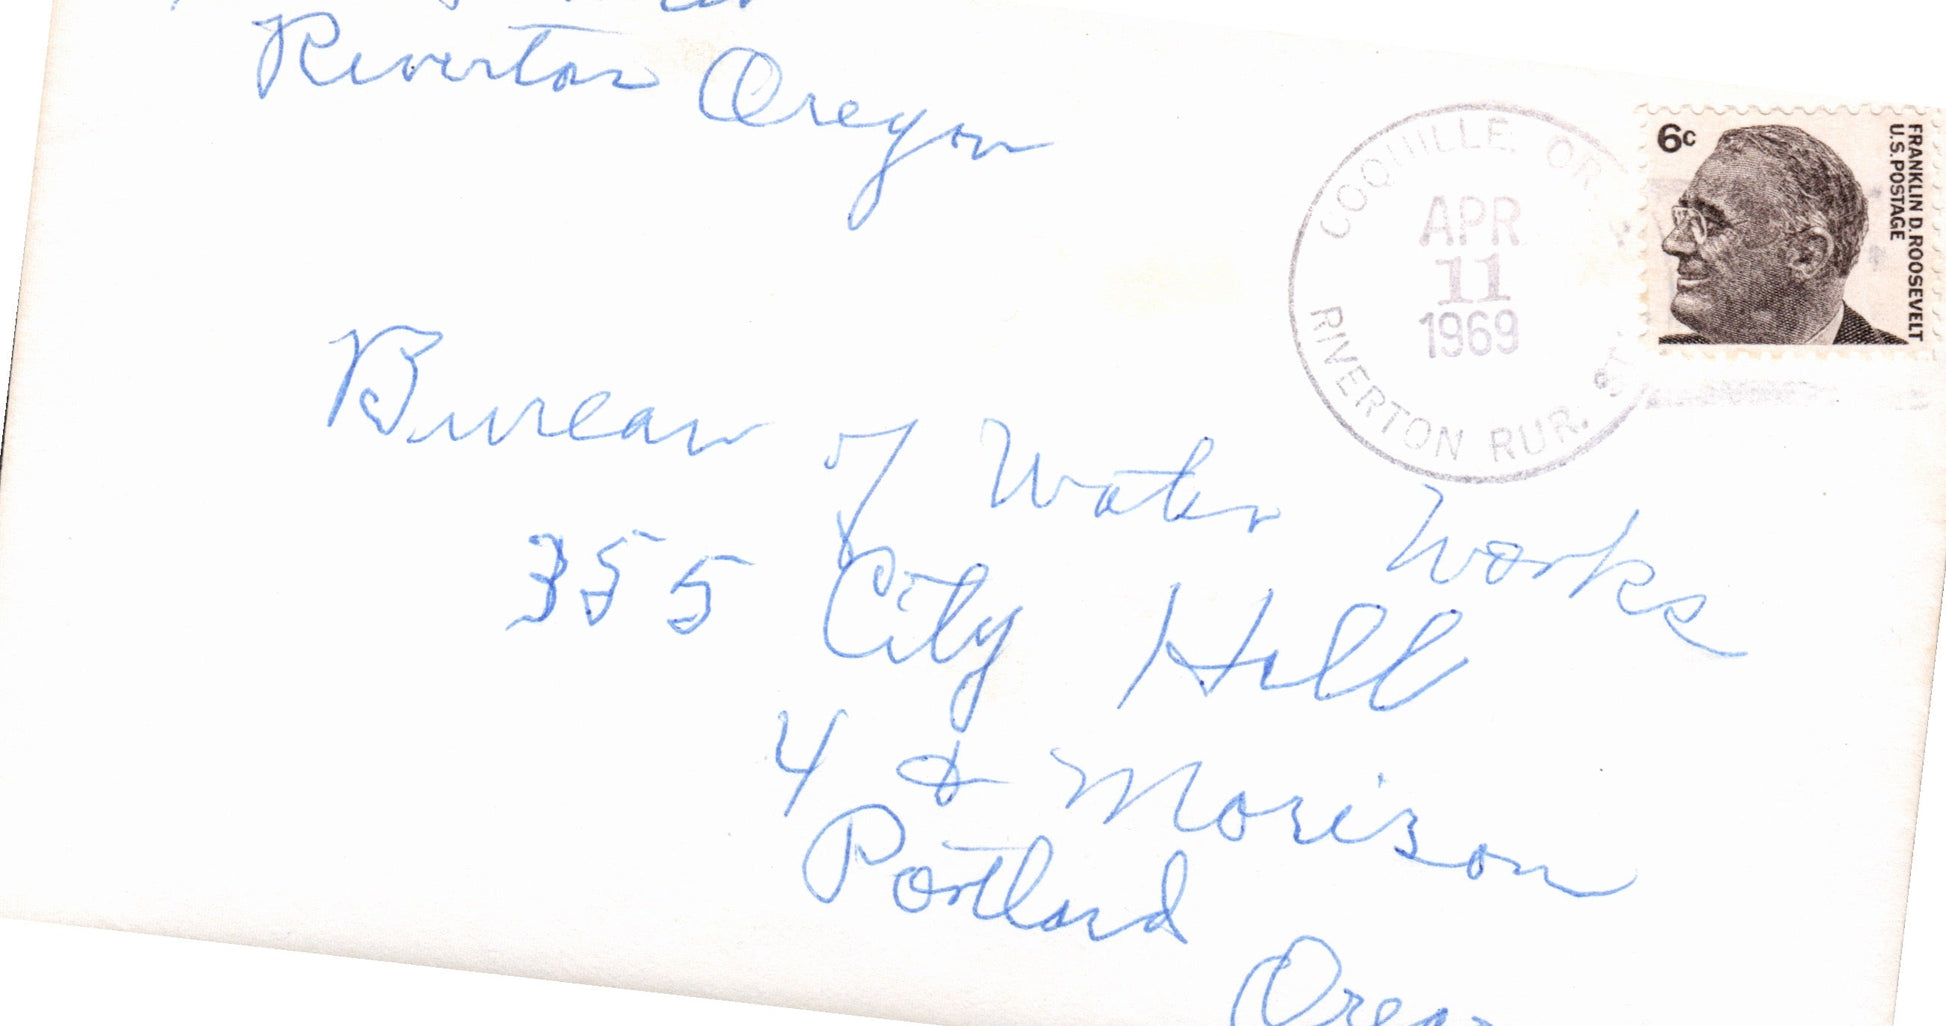 Riverton Oregon
COQUILLE, OR
APR
11
1969
RIVERTON RUR.
6c
FRANKLIN D. ROOSEVELT
U.S. POSTAGE
Bureau of Water Works
355 City Hall
4 & Morison
Portland